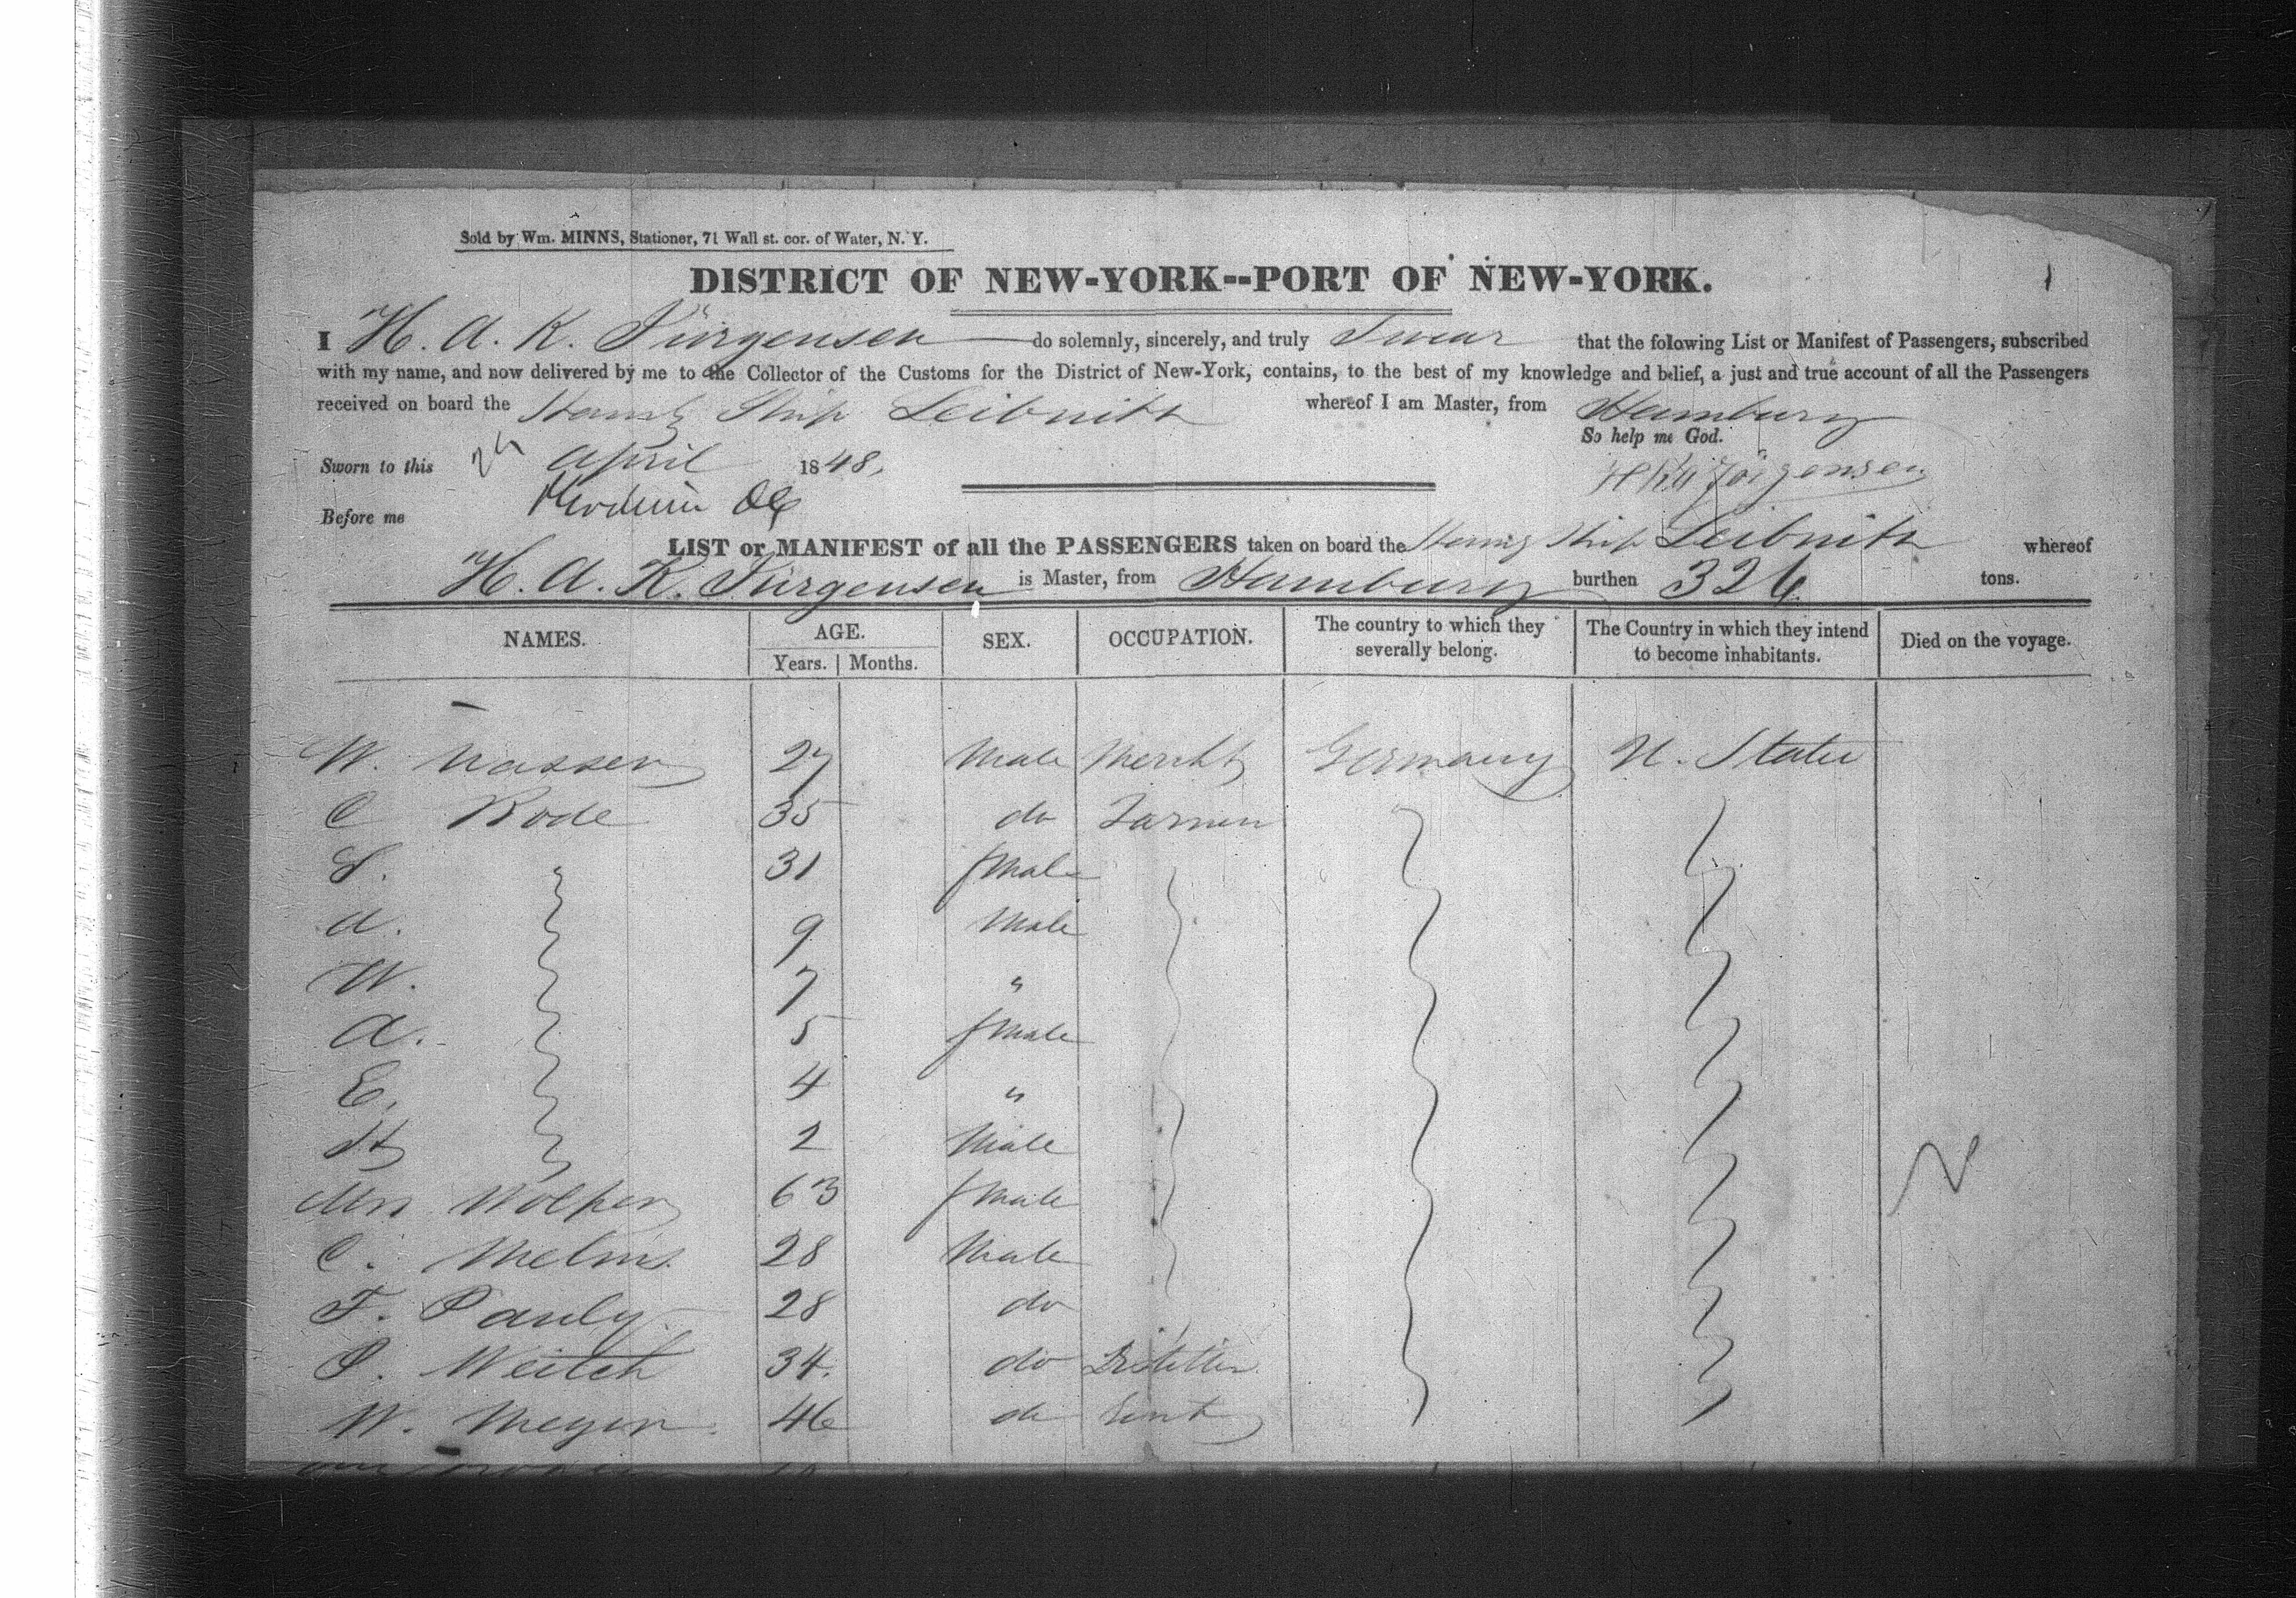 Sold by Wm. MINNS, Stationer, 71 Wall st. cor. of Water, N. Y.
DISTRICT OF NEW-YORK--PORT OF NEW-YORK.
I H. A. K. Jürgensen do solemnly, sincerely, and truly Swear that the folowing List or Manifest of Passengers, subscribed
with my name, and now delivered by me to the Collector of the Customs for the District of New-York, contains, to the best of my knowledge and belief, a just and true account of all the Passengers
received on board the Hamb Ship Leibnitz whereof I am Master, from Hamburg
So help me God.
Sworn to this 24 April 1848.
Jörgensen
Before me
LIST or MANIFEST of all the PASSENGERS taken on board the Ship Leibnitz whereof
H. A. K. Jürgensen is Master, from Hamburg burthen 326 tons.
NAMES. AGE. SEX. OCCUPATION. The country to which they severally belong. The Country in which they intend to become inhabitants. Died on the voyage.
Years. Months.
W. Nassen 27 Male Mercht Germany U. States
C Rode 35 do Farmer
S. 31 fmale
A. 9 Male
W. 7 "
A. 5 fmale
E. 4 "
H 2 Male
Mrs Wolper 63 fmale
C. Melms 28 Male
F. Pauly 28 do
P. Weitch 34. do Distiller
W. Meyer 46 do